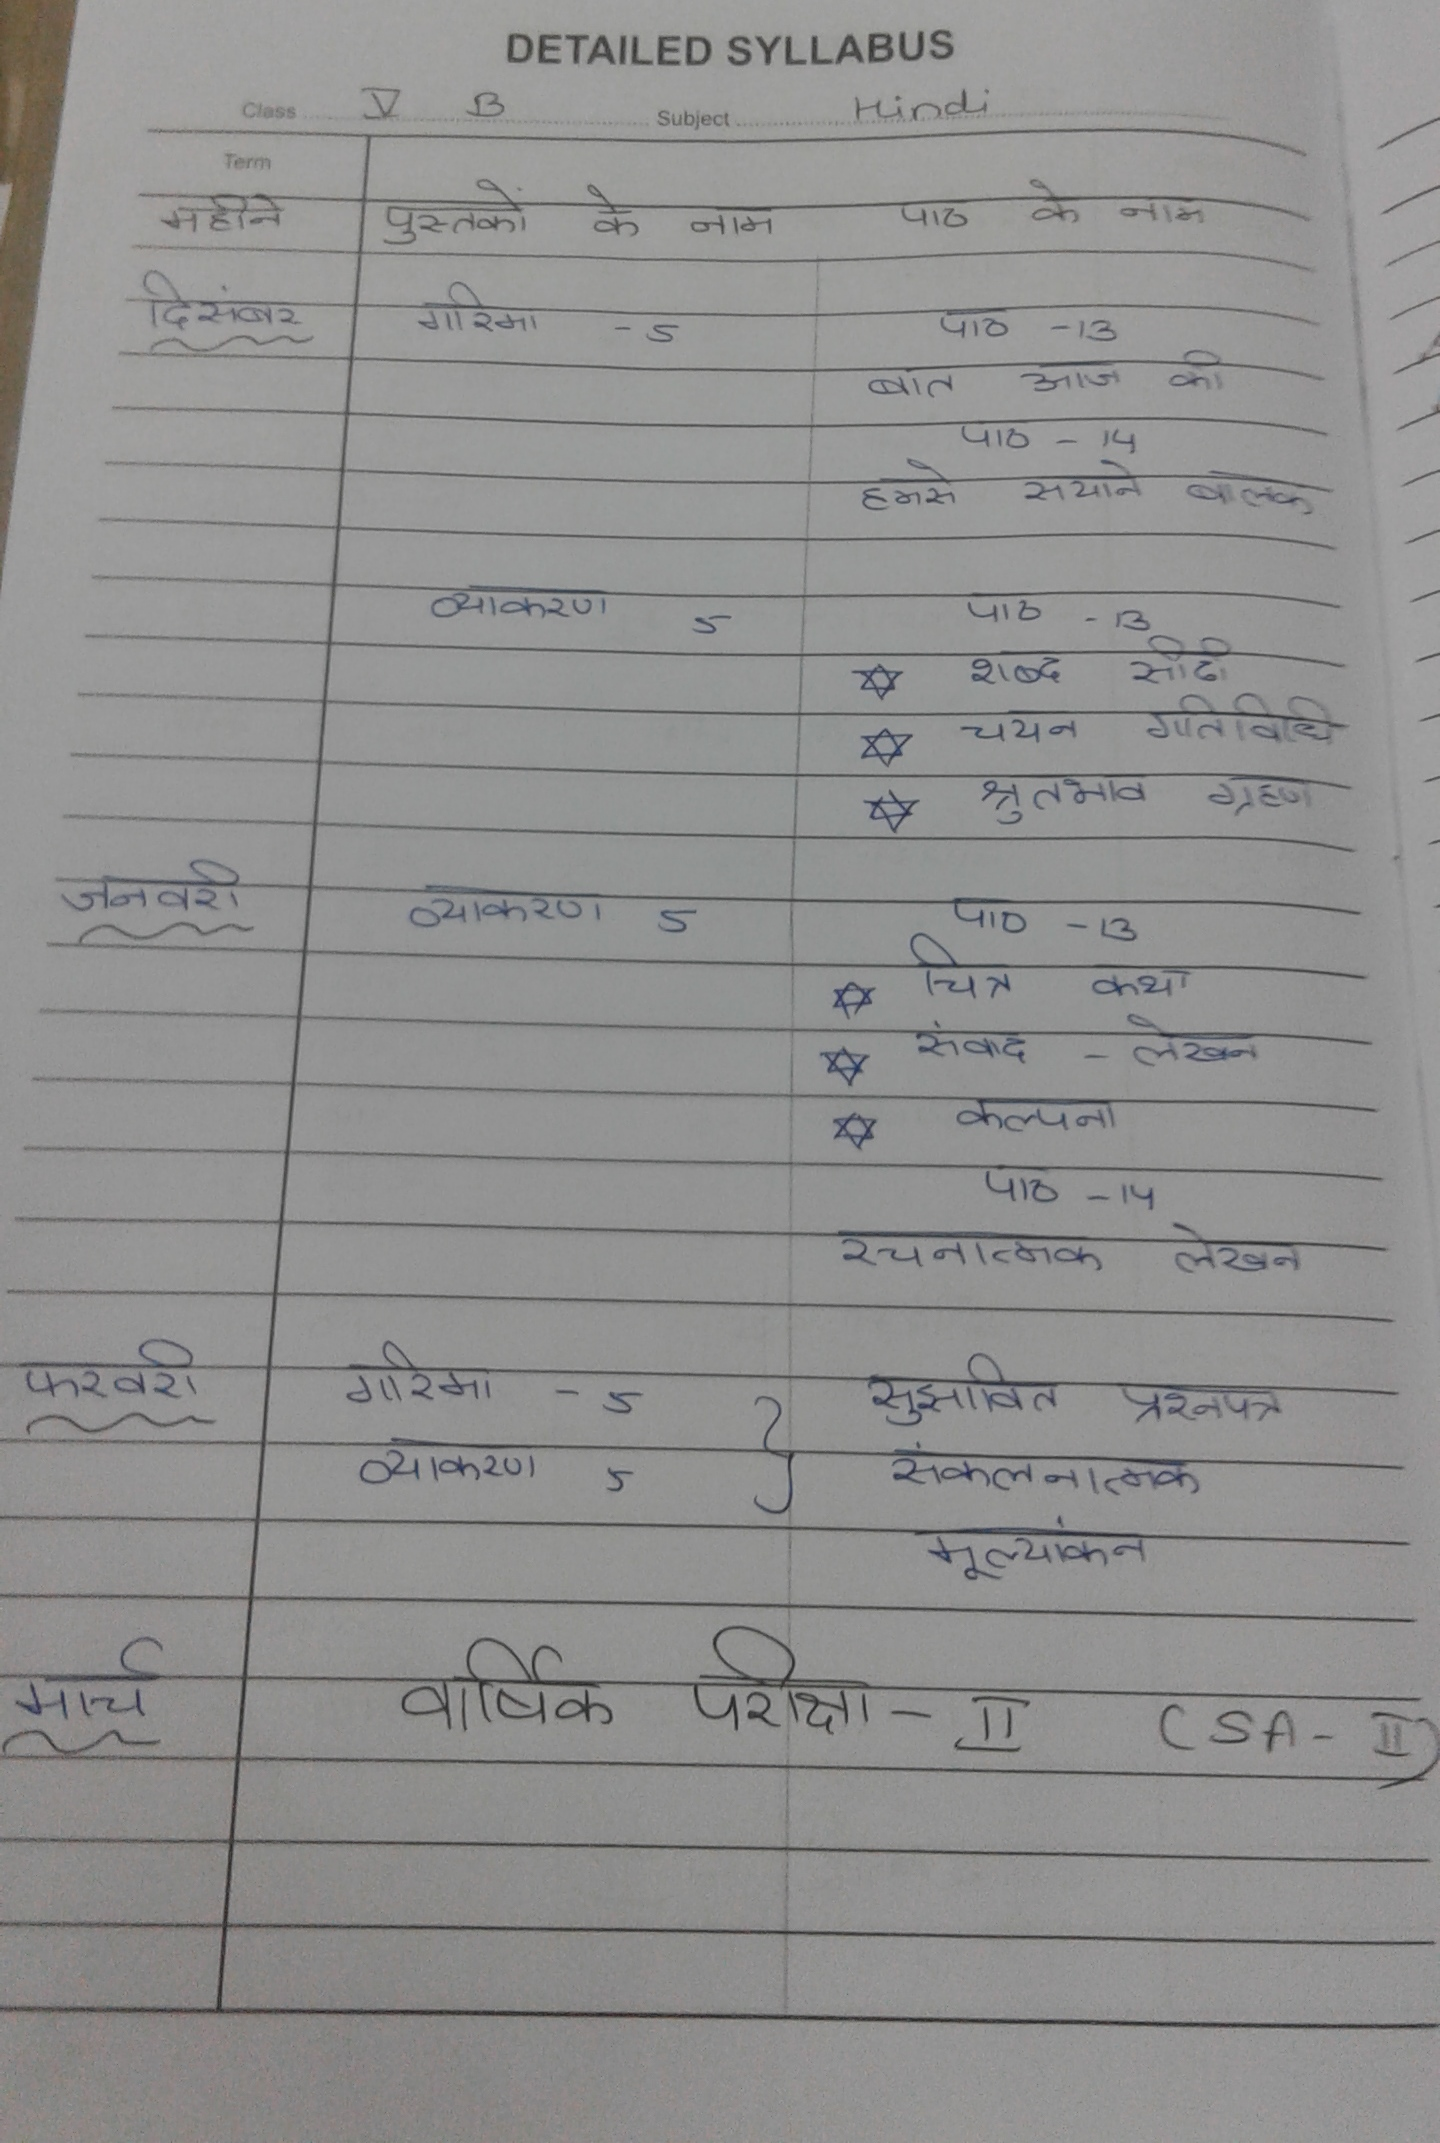 DETAILED SYLLABUS
Class V B Subject Hindi
Term
महीने पुस्तकों के नाम पाठ के नाम
दिसंबर गरिमा - 5 पाठ - 13
बात आज की
पाठ - 14
हमसे सयाने बालक
व्याकरण 5 पाठ - 13
शब्द सीढ़ी
चयन गतिविधि
श्रुतभाव ग्रहण
जनवरी व्याकरण 5 पाठ - 13
चित्र कथा
संवाद - लेखन
कल्पना
पाठ - 14
रचनात्मक लेखन
फरवरी गरिमा - 5 } सुझावित प्रश्नपत्र
व्याकरण 5 संकलनात्मक
मूल्यांकन
मार्च वार्षिक परीक्षा - II (SA - II)